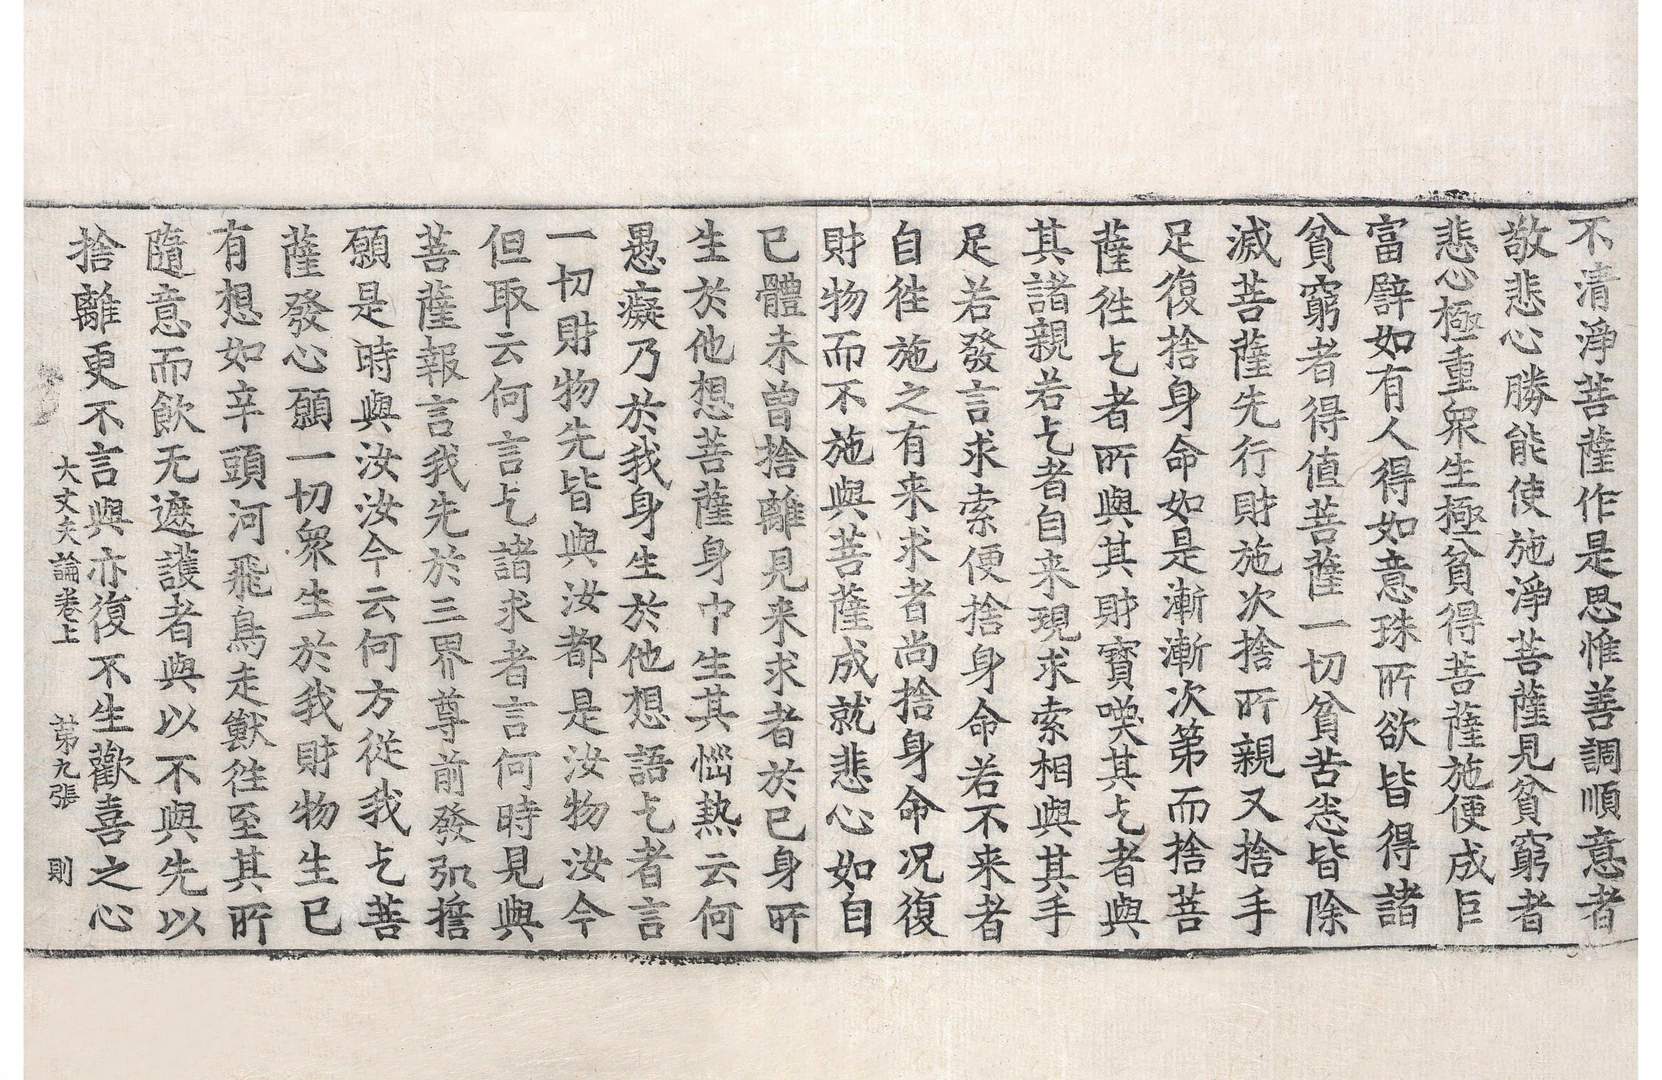 不清淨菩薩作是思惟善調順意者
敬悲心勝能使施淨菩薩見貧窮者
悲心極重衆生極貧得菩薩施便成巨
富譬如有人得如意珠所欲皆得諸
貧窮者得值菩薩一切貧苦悉皆除
滅菩薩先行財施次捨所親又捨手
足復捨身命如是漸漸次第而捨菩
薩徃乞者所與其財寳喚其乞者與
其諸親若乞者自来現求索相與其手
足若發言求索便捨身命若不来者
自徃施之有来求者尚捨身命况復
財物而不施與菩薩成就悲心如自
已體未曽捨離見来求者於已身所
生於他想菩薩身中生其惱熱云何
愚癡乃於我身生於他想語乞者言
一切財物先皆與汝都是汝物汝今
但取云何言乞諸求者言何時見與
菩薩報言我先於三界尊前發弘擔
願是時與汝汝今云何方從我乞菩
薩發心願一切衆生於我財物生已
有想如辛頭河飛鳥走獸徃至其所
隨意而飲无遮護者與以不與先以
捨離更不言與亦復不生歡喜之心
大丈夫論卷上　第九張　則